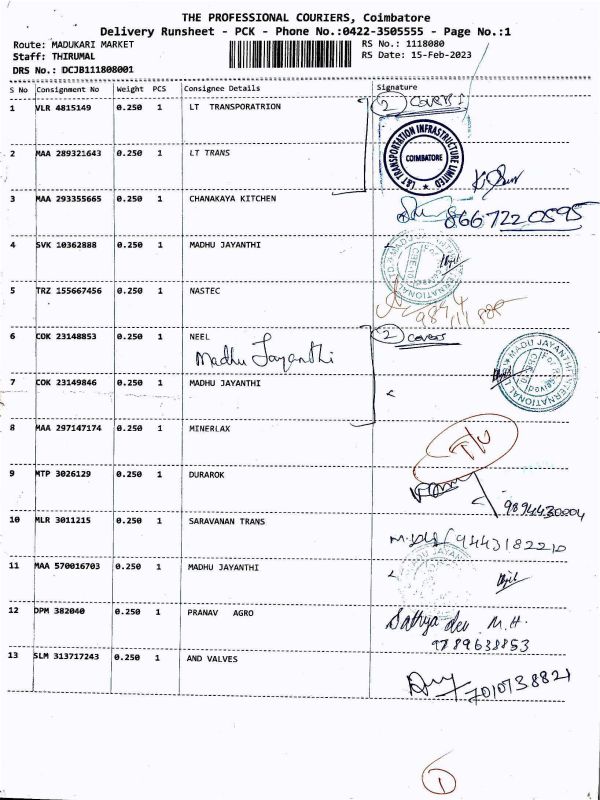 THE PROFESSIONAL COURIERS, Coimbatore
Delivery Runsheet - PCK - Phone No.:0422-3505555 - Page No.:1
Route: MADUKARI MARKET
RS No.: 1118080
Staff: THIRUMAL
RS Date: 15-Feb-2023
DRS No.: DCJB111808001
S No Consignment No Weight PCS Consignee Details Signature
1 VLR 4815149 0.250 1 LT TRANSPORATRION 2 COVERS
L&T TRANSPORTATION INFRASTRUCTURE LIMITED
COIMBATORE
2 MAA 289321643 0.250 1 LT TRANS
3 MAA 293355665 0.250 1 CHANAKAYA KITCHEN 8667220595
4 SVK 10362888 0.250 1 MADHU JAYANTHI
5 TRZ 155667456 0.250 1 NASTEC
6 COK 23148853 0.250 1 NEEL 2 covers
Madhu Jayanthi
MADU JAYANTHI INTERNATIONAL
7 COK 23149846 0.250 1 MADHU JAYANTHI
8 MAA 297147174 0.250 1 MINERLAX
9 MTP 3026129 0.250 1 DURAROK
10 MLR 3011215 0.250 1 SARAVANAN TRANS 9443182210
11 MAA 570016703 0.250 1 MADHU JAYANTHI
12 DPM 382040 0.250 1 PRANAV AGRO Sathya dev M.H.
9789638853
13 SLM 313717243 0.250 1 AND VALVES 7010738821
1